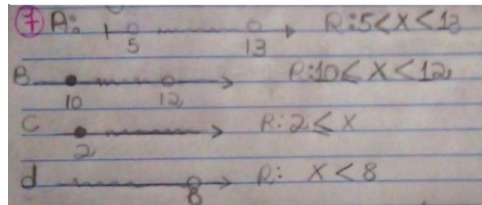 7 A: 5 13 R: 5 < X < 13
B 10 12 R: 10 ≤ X < 12
C 2 R: 2 ≤ X
d 8 R: X < 8